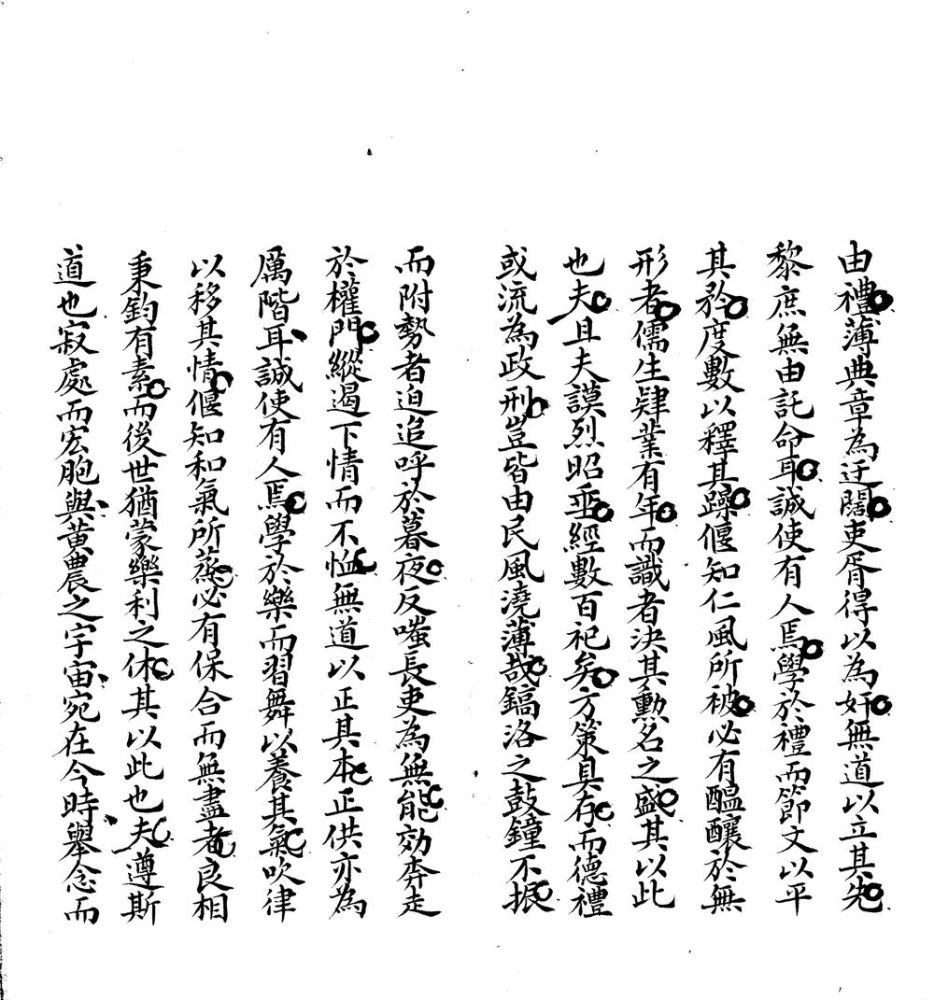 由禮薄典章為迂闊吏胥得以為奸無道以立其先
黎庶無由託命耳誠使有人焉學於禮而節文以平
其矜度數以釋其躁偃知仁風所被必有醞釀於無
形者儒生肄業有年而識者決其勳名之盛其以此
也夫且夫謨烈昭垂經數百祀矣方策具存而德禮
或流為政刑豈皆由民風澆薄哉鎬洛之鼓鐘不振
而附勢者迫追呼於暮夜反嗤長吏為無能効奔走
於權門縱遏下情而不恤無道以正其本正供亦為
厲階耳誠使有人焉學於樂而習舞以養其氣吹律
以移其情偃知和氣所蒸必有保合而無盡者良相
秉鈞有素而後世猶蒙樂利之休其以此也夫遵斯
道也寂處而宏胞與黃農之宇宙宛在今時舉念而